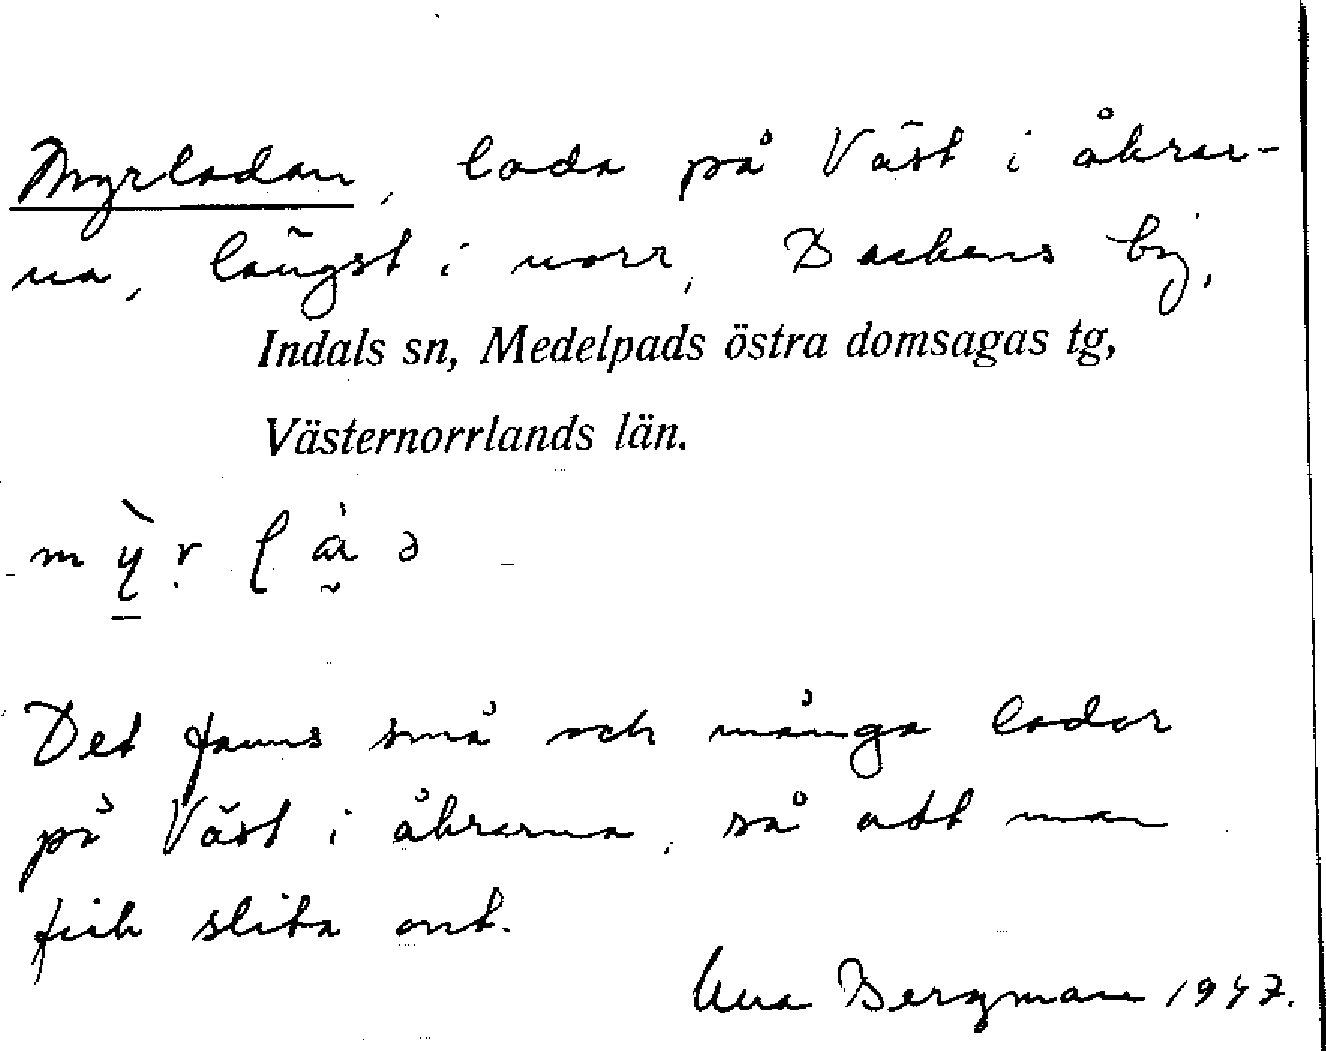 Myrladan, lada på Väst i åkrar-
na, längst i norr, Backens by,
Indals sn, Medelpads östra domsagas tg,
Västernorrlands län.
Det fanns små och många lador
på Väst i åkrarna, så att man
fick slita ont.
Bergman 1947.